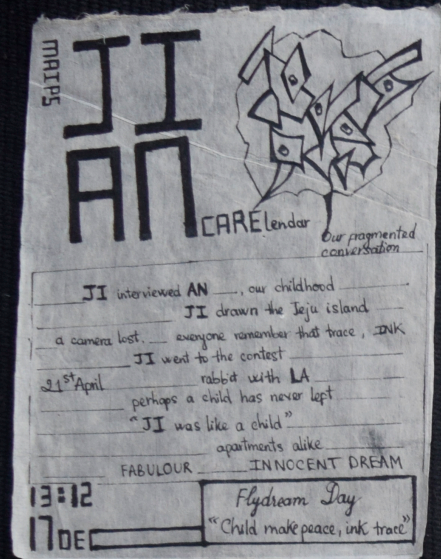 MAIPS
JI
AN
CARElendar
Our fragmented
conversation
JI interviewed AN ___, our childhood
JI drawn the Jeju island
a camera lost, ___ everyone remember that trace, INK
JI went to the contest
21st April ___ rabbit with LA
perhaps a child has never left
"JI was like a child"
apartments alike
FABULOUR ___ INNOCENT DREAM
13:12
17 DEC
Flydream Day
"Child make peace, ink trace"